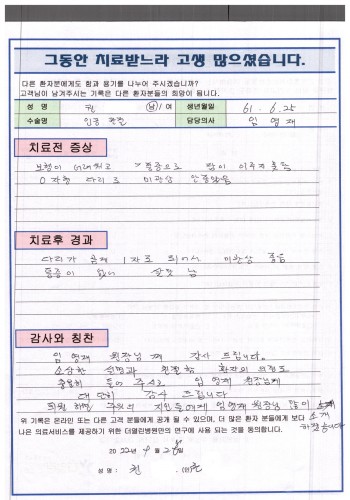 그동안 치료받느라 고생 많으셨습니다.
다른 환자분에게도 힘과 용기를 나누어 주시겠습니까?
고객님이 남겨주시는 기록은 다른 환자분들의 희망이 됩니다.
성 명 권 남 / 여 생년월일 61. 6. 25
수술명 인공 관절 담당의사 임 영 재
치료전 증상
보행이 어려웠고 통증으로 많이 아주 힘듦
O 자형 다리로 미관상 안좋았음
치료후 경과
다리가 곧게 1자로 되어서 미관상 좋음
통증이 없어 살맛 남
감사와 칭찬
임 영재 원장님 께 감사 드립니다.
소상한 설명과 친절함 환자의 의견도
충분히 들어 주시고 임 영재 원장님께
대단히 감사 드립니다
퇴원 하면 주위의 지인들에게 임영재 원장님 많이 소개
하겠습니다
위 기록은 온라인 또는 다른 고객 분들에게 공개 될 수 있으며, 더 많은 환자 분들에게 보다
나은 의료서비스를 제공하기 위한 더열린병원만의 연구에 사용 되는 것을 동의합니다.
2022년 4월 2 일
성 명 : 권 (인)